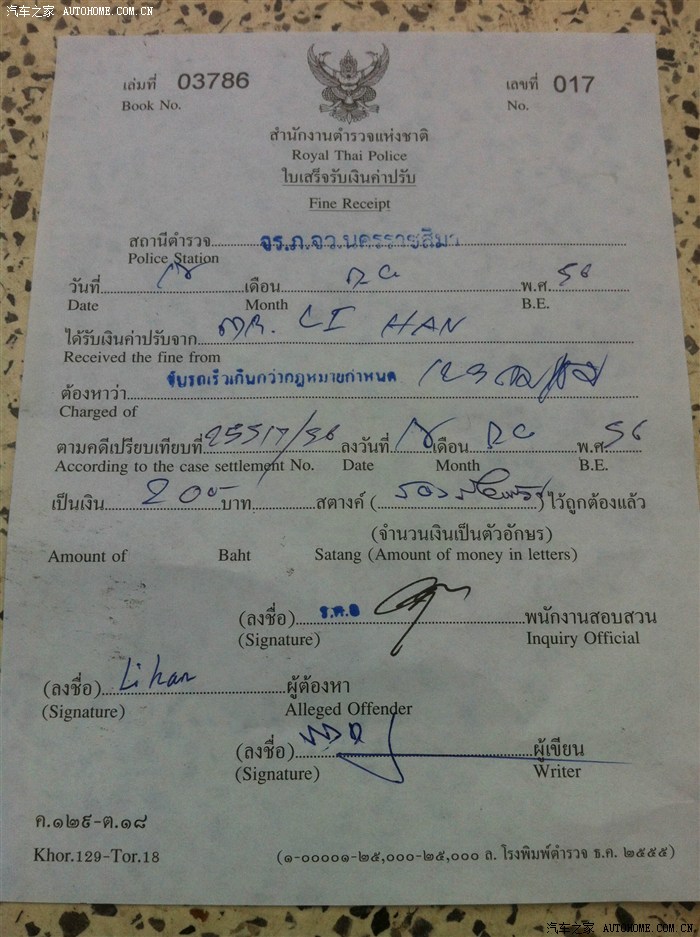 汽车之家 AUTOHOME.COM.CN
เล่มที่ 03786 เลขที่ 017
Book No. No.
สำนักงานตำรวจแห่งชาติ
Royal Thai Police
ใบเสร็จรับเงินค่าปรับ
Fine Receipt
สถานีตำรวจ จร.ภ.จว.นครราชสิมา
Police Station
วันที่ เดือน พ.ศ. 56
Date Month B.E.
ได้รับเงินค่าปรับจาก MR. LI HAN
Received the fine from
ต้องหาว่า ขับรถเร็วเกินกว่ากฎหมายกำหนด
Charged of
ตามคดีเปรียบเทียบที่ ลงวันที่ เดือน พ.ศ. 56
According to the case settlement No. Date Month B.E.
เป็นเงิน 200- บาท สตางค์ ( ) ไว้ถูกต้องแล้ว
(จำนวนเงินเป็นตัวอักษร)
Amount of Baht Satang (Amount of money in letters)
(ลงชื่อ) ร.ต.อ พนักงานสอบสวน
(Signature) Inquiry Official
(ลงชื่อ) Li han ผู้ต้องหา
(Signature) Alleged Offender
(ลงชื่อ) ผู้เขียน
(Signature) Writer
ค.๑๒๙-ต.๑๘
Khor.129-Tor.18 (๑-๐๐๐๐๑-๒๕,๐๐๐-๒๕,๐๐๐ ล. โรงพิมพ์ตำรวจ ธ.ค. ๒๕๕๕)
汽车之家 AUTOHOME.COM.CN